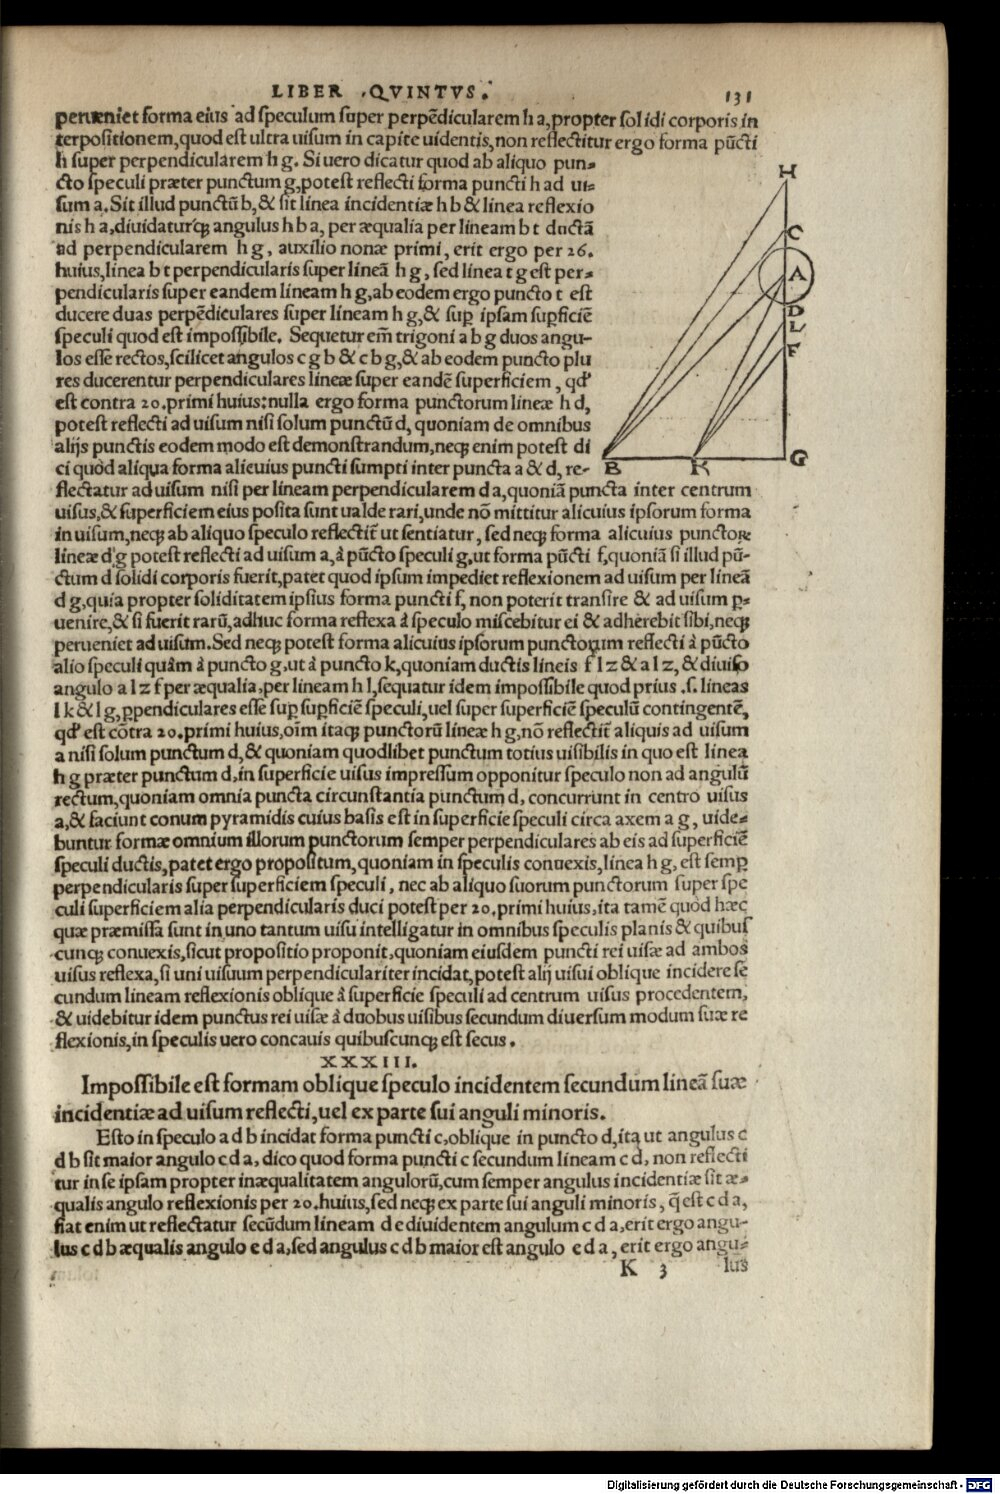 LIBER QVINTVS.
131
perueniet forma eius ad speculum super perpẽdicularem h a, propter solidi corporis in
terpositionem, quod est ultra uisum in capite uidentis, non reflectitur ergo forma pũcti
h super perpendicularem h g. Si uero dicatur quod ab aliquo pun-
cto speculi præter punctum g, potest reflecti forma puncti h ad ui-
sum a. Sit illud punctũ b, & sit linea incidentiæ h b & linea reflexio
nis h a, diuidaturq́; angulus h b a, per æqualia per lineam b t ductã
ad perpendicularem h g, auxilio nonæ primi, erit ergo per 26.
huius, linea b t perpendicularis super lineã h g, sed linea t g est per-
pendicularis super eandem lineam h g, ab eodem ergo puncto t est
ducere duas perpẽdiculares super lineam h g, & suꝑ ipsam suꝑficiẽ
speculi quod est impossibile. Sequetur em̃ trigoni a b g duos angu-
los esse rectos, scilicet angulos c g b & c b g, & ab eodem puncto plu
res ducerentur perpendiculares lineæ super eandẽ superficiem, qd'
est contra 20. primi huius: nulla ergo forma punctorum lineæ h d,
potest reflecti ad uisum nisi solum punctũ d, quoniam de omnibus
alijs punctis eodem modo est demonstrandum, neq; enim potest di
ci quòd aliqua forma alicuius puncti sumpti inter puncta a & d, re-
flectatur ad uisum nisi per lineam perpendicularem d a, quoniã puncta inter centrum
uisus, & superficiem eius posita sunt ualde rari, unde nõ mittitur alicuius ipsorum forma
in uisum, neq; ab aliquo speculo reflectit̃ ut sentiatur, sed neq; forma alicuius punctoꝝ
lineæ d g potest reflecti ad uisum a, à pũcto speculi g, ut forma pũcti f, quoniã si illud pũ-
ctum d solidi corporis fuerit, patet quod ipsum impediet reflexionem ad uisum per lineã
d g, quia propter soliditatem ipsius forma puncti f, non poterit transire & ad uisum ꝑ-
uenire, & si fuerit rarũ, adhuc forma reflexa à speculo miscebitur ei & adherebit sibi, neq;
perueniet ad uisum. Sed neq; potest forma alicuius ipsorum punctorum reflecti à pũcto
alio speculi quàm à puncto g, ut à puncto k, quoniam ductis lineis f l z & a l z, & diuiso
angulo a l z f per æqualia, per lineam h l, sequatur idem impossibile quod prius .s. lineas
l k & l g, ꝑpendiculares esse suꝑ suꝑficiẽ speculi, uel super superficiẽ speculũ contingentẽ,
qd' est cõtra 20. primi huius, oĩm itaq; punctorũ lineæ h g, nõ reflectit̃ aliquis ad uisum
a nisi solum punctum d, & quoniam quodlibet punctum totius uisibilis in quo est linea
h g præter punctum d, in superficie uisus impressum opponitur speculo non ad angulũ
rectum, quoniam omnia puncta circunstantia punctum d, concurrunt in centro uisus
a, & faciunt conum pyramidis cuius basis est in superficie speculi circa axem a g, uide-
buntur formæ omnium illorum punctorum semper perpendiculares ab eis ad superficiẽ
speculi ductis, patet ergo propositum, quoniam in speculis conuexis, linea h g, est semꝑ
perpendicularis super superficiem speculi, nec ab aliquo suorum punctorum super spe
culi superficiem alia perpendicularis duci potest per 20. primi huius, ita tamẽ quòd hæc
quæ præmissa sunt in uno tantum uisu intelligatur in omnibus speculis planis & quibus
cunq; conuexis, sicut propositio proponit, quoniam eiusdem puncti rei uisæ ad ambos
uisus reflexa, si uni uisuum perpendiculariter incidat, potest alij uisui oblique incidere se
cundum lineam reflexionis oblique à superficie speculi ad centrum uisus procedentem,
& uidebitur idem punctus rei uisæ à duobus uisibus secundum diuersum modum suæ re
flexionis, in speculis uero concauis quibuscunq; est secus.
XXXIII.
Impossibile est formam oblique speculo incidentem secundum lineã suæ
incidentiæ ad uisum reflecti, uel ex parte sui anguli minoris.
Esto in speculo a d b incidat forma puncti c, oblique in puncto d, ita ut angulus c
d b sit maior angulo c d a, dico quod forma puncti c secundum lineam c d, non reflecti
tur in se ipsam propter inæqualitatem angulorũ, cum semper angulus incidentiæ sit æ-
qualis angulo reflexionis per 20. huius, sed neq; ex parte sui anguli minoris, q̃ est c d a,
fiat enim ut reflectatur secũdum lineam d e diuidentem angulum c d a, erit ergo angu-
lus c d b æqualis angulo e d a, sed angulus c d b maior est angulo e d a, erit ergo angu-
K 3 lus
H
C
A
D
L
F
B K G
Digitalisierung gefördert durch die Deutsche Forschungsgemeinschaft - DFG